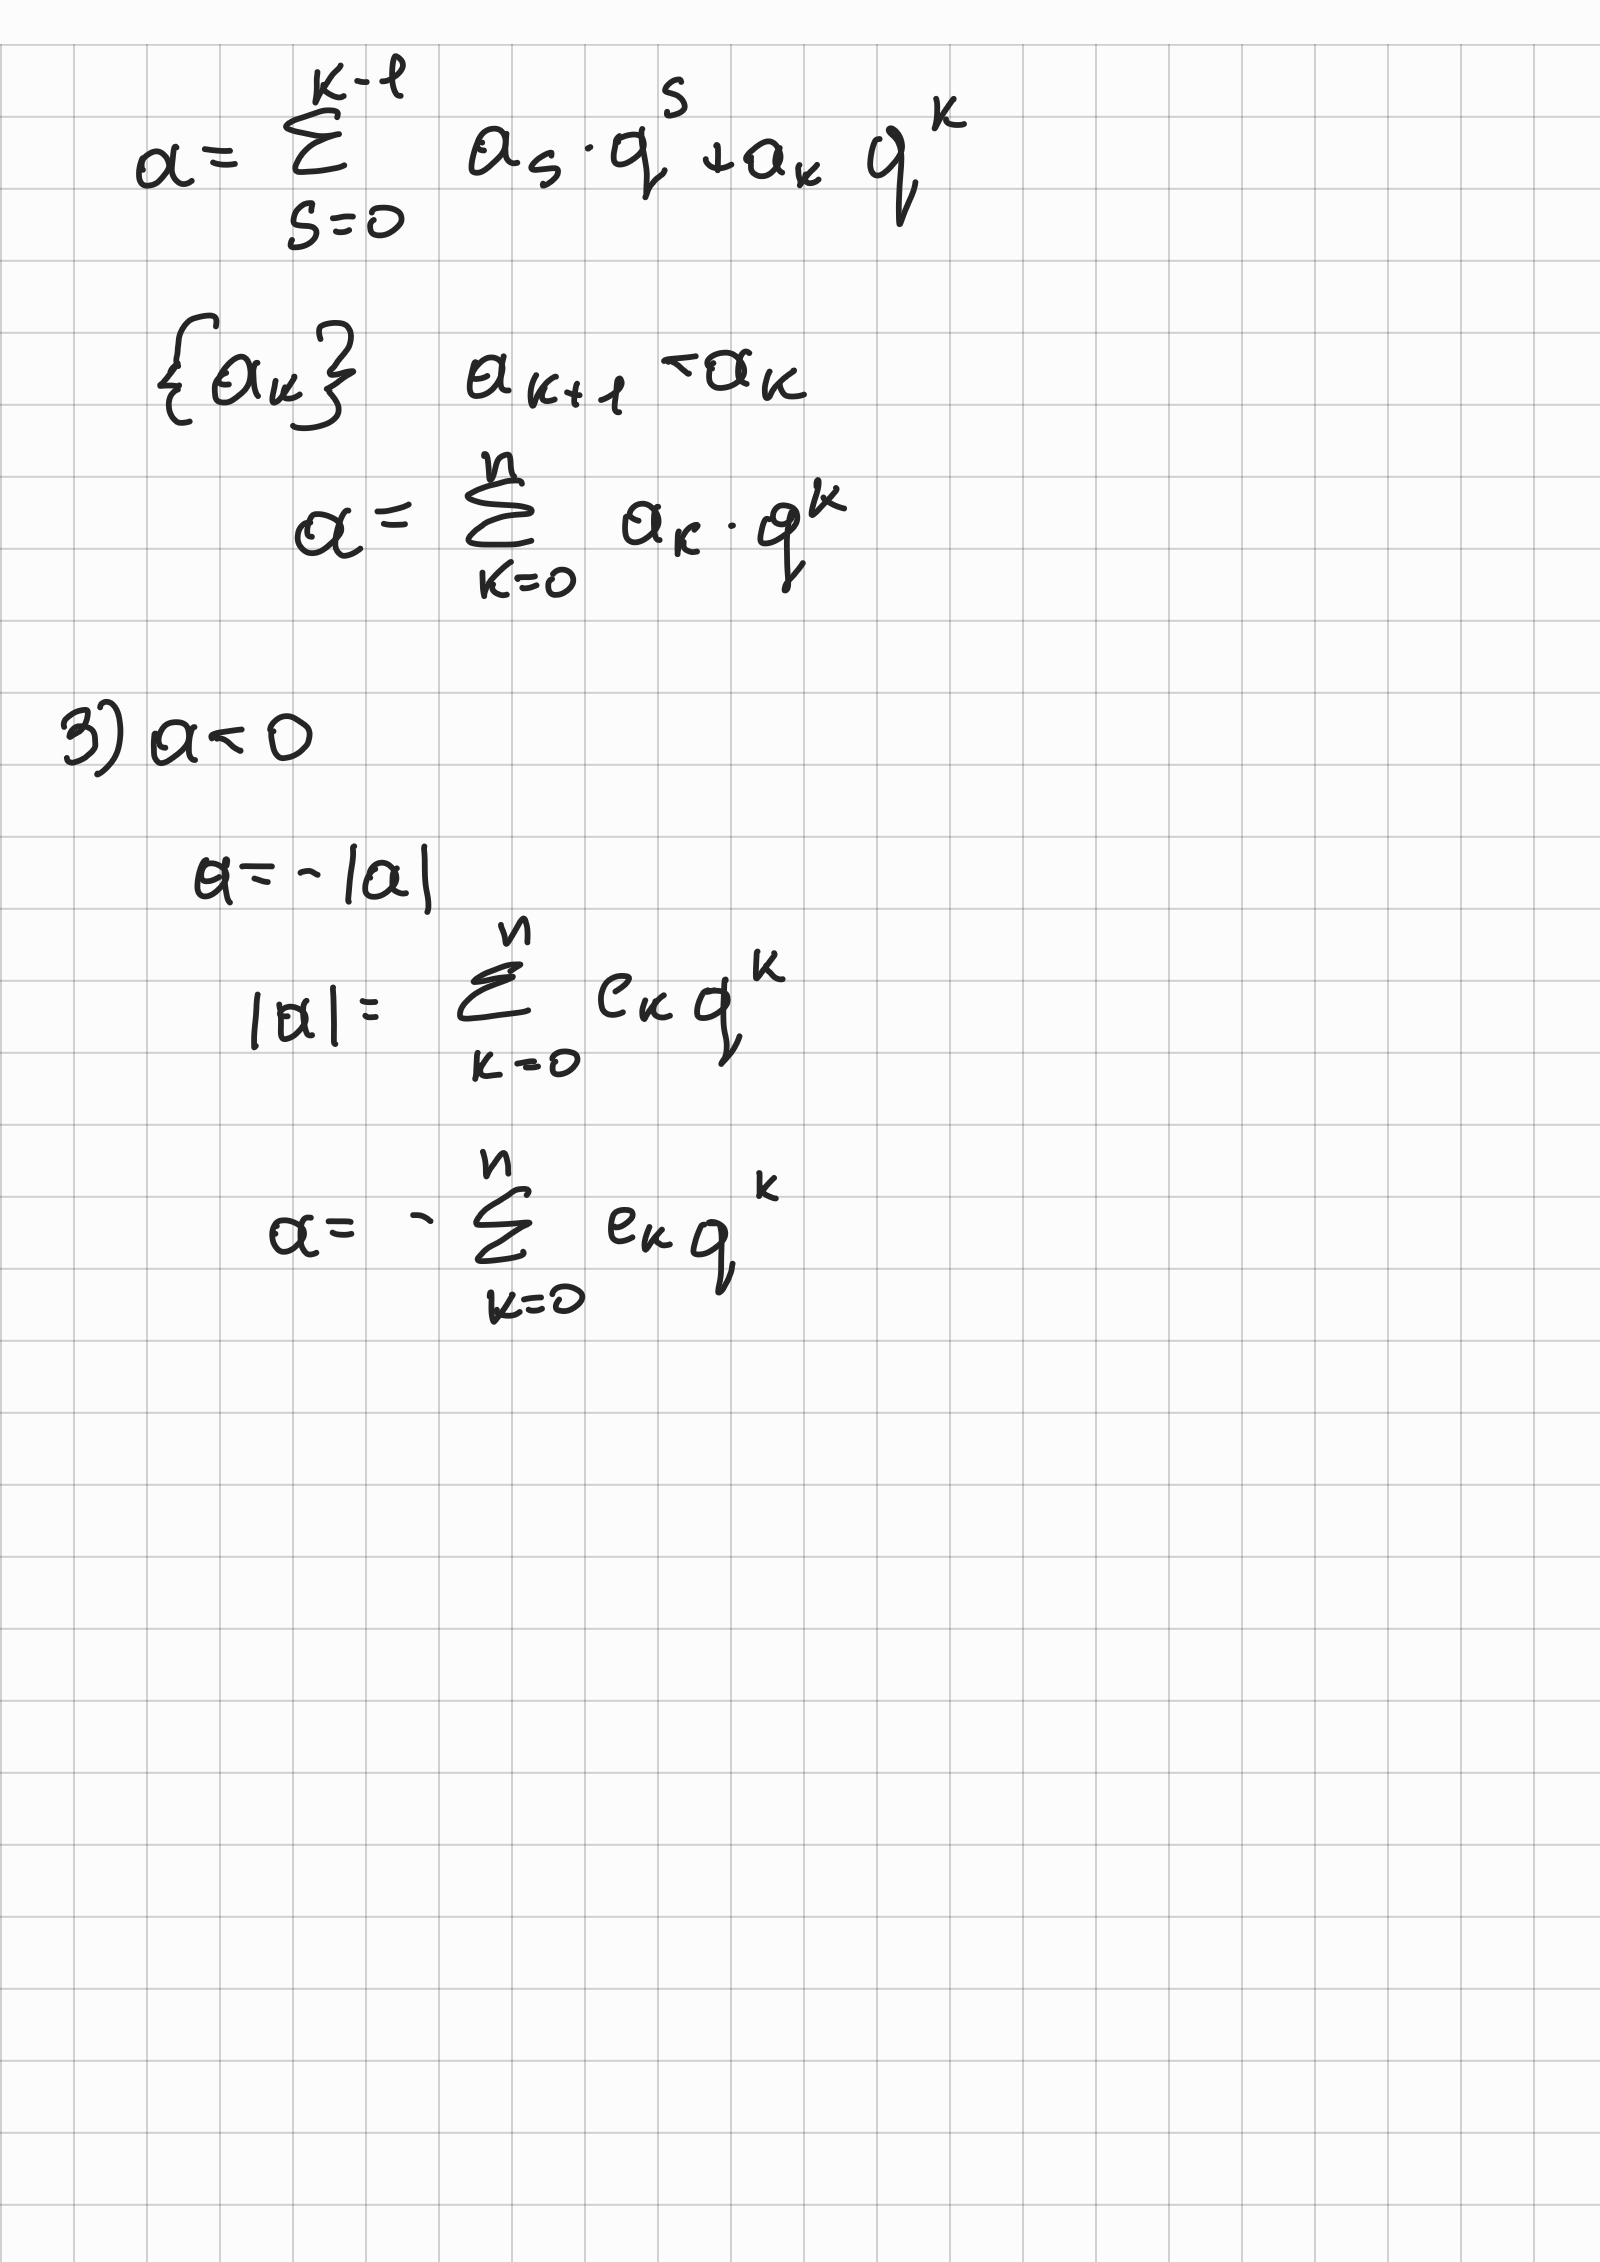 a = \sum_{s=0}^{k-1} a_s \cdot q^s + a_k q^k
{a_k} a_{k+1} < a_k
a = \sum_{k=0}^{n} a_k \cdot q^k
3) a < 0
a = -|a|
|a| = \sum_{k=0}^{n} e_k q^k
a = - \sum_{k=0}^{n} e_k q^k